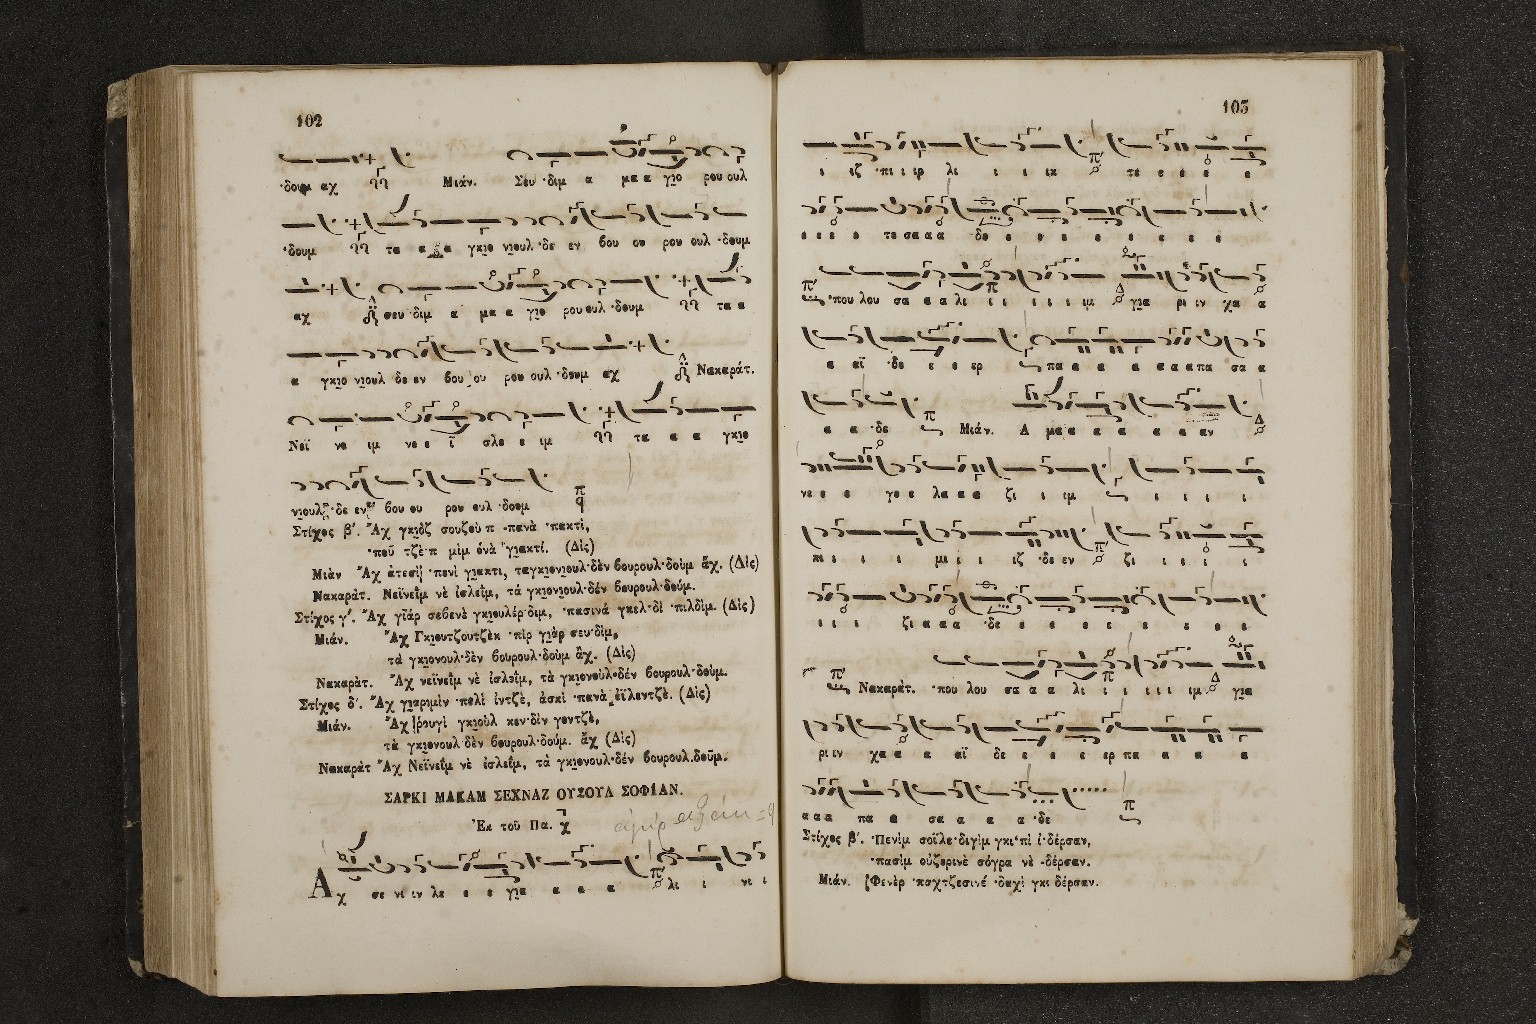 102
·δουμ αχ ??  Μιάν.  Σευ ·διμ α μα α γιο ρου ουλ
·δουμ ?? τα α α γκιο νιουλ ·δε εν βου ου ρου ουλ ·δουμ
αχ σευ ·διμ α μα α γιο ρου ουλ ·δουμ ?? τα α
α γκιο νιουλ ·δε εν βου ου ρου ουλ ·δουμ αχ Νακαράτ.
Νεϊ νε ιμ νε ε ΐ σλε ε ιμ ?? τα α α γκιο
νιουλ ·δε εν βου ου ρου ουλ ·δουμ
Στίχος β΄. Ἂχ γκιὸζ σουζοὺπ ·πανὰ ·πακτὶ,
·ποῦ τζὲπ μὶμ ὀνὰ γιακτί. (Δὶς)
Μιὰν Ἂχ ἀτεσὴ ·πενὶ γιακτι, ταγκιονιουλ·δὲν βουρουλ·δοὺμ ἄχ. (Δὶς)
Νακαρὰτ. Νεϊνεῒμ νὲ ἰσλεῒμ, τὰ γκιονιουλ·δὲν βουρουλ·δούμ.
Στίχος γ΄. Ἂχ γϊὰρ σεβενὲ γκιουλέρ·διμ, ·πασινὰ γκελ·δὶ ·πιλδὶμ. (Δὶς)
Μιάν. Ἂχ Γκιουτζουτζὲκ ·πὶρ γιὰρ σευ·δὶμ,
τὰ γκιονουλ·δὲν βουρουλ·δοὺμ ἂχ. (Δὶς)
Νακαρὰτ. Ἂχ νεϊνεῒμ νὲ ἰσλεῒμ, τὰ γκιονοὺλ·δέν βουρουλ·δοὺμ.
Στίχος δ΄. Ἂχ γιαριμὶν ·πελὶ ἰντζὲ, ἀσκὶ ·πανὰ εϊλεντζὲ. (Δὶς)
Μιάν. Ἂχ ρουγὶ γκιοὺλ κεν·δὶν γοντζὲ,
τὰ γκιονουλ·δὲν βουρουλ·δούμ. ἄχ (Δὶς)
Νακαρὰτ Ἂχ Νεϊνεῒμ νὲ ἰσλεῒμ, τὰ γκιονουλ·δέν βουρουλ.δοῦμ.
ΣΑΡΚΙ ΜΑΚΑΜ ΣΕΧΝΑΖ ΟΥΣΟΥΛ ΣΟΦΙΑΝ.
Ἐκ τοῦ Πα.
Α χ σε νι ιν λε ε ε για α α α λι ι νι ι
103
ι ιζ ·πι ι ιρ λι ι ι ικ τε ε ε ε ε
ε ε ε ε τε σα α α ·δε ε ε ε ε ε ε ε ε
·που λου σα α α λι ι ι ι ι ι ιμ για ρι ιν χα α
α αϊ ·δε ε ε ερ πα α α α α α α πα σα α
α α ·δε Μιάν. Α μα α α α α α αν
νε ε ε γε ε λα α α ζι ι ιμ ι ι ι ι
πι ι ι ι μι ι ι ιζ ·δε εν ζι ι ι ι ι
ι ι ι ζι α α α ·δε ε ε ε ε ε ε ε ε
Νακαράτ. ·που λου σα α α λι ι ι ι ι ι ιμ για
ρι ιν χα α α α αϊ δε ε ε ε ερ πα α α α
α α α πα α σα α α α ·δε
Στίχος β΄. ·Πενὶμ σοϊλε·διγὶμ γκι·πὶ ἰ·δέρσαν,
·πασὶμ οὐζερινὲ σόγρα νὲ ·δέρσαν.
Μιάν. Φενὲρ ·παχτζεσινέ ·δαχὶ γκι δέρσαν.